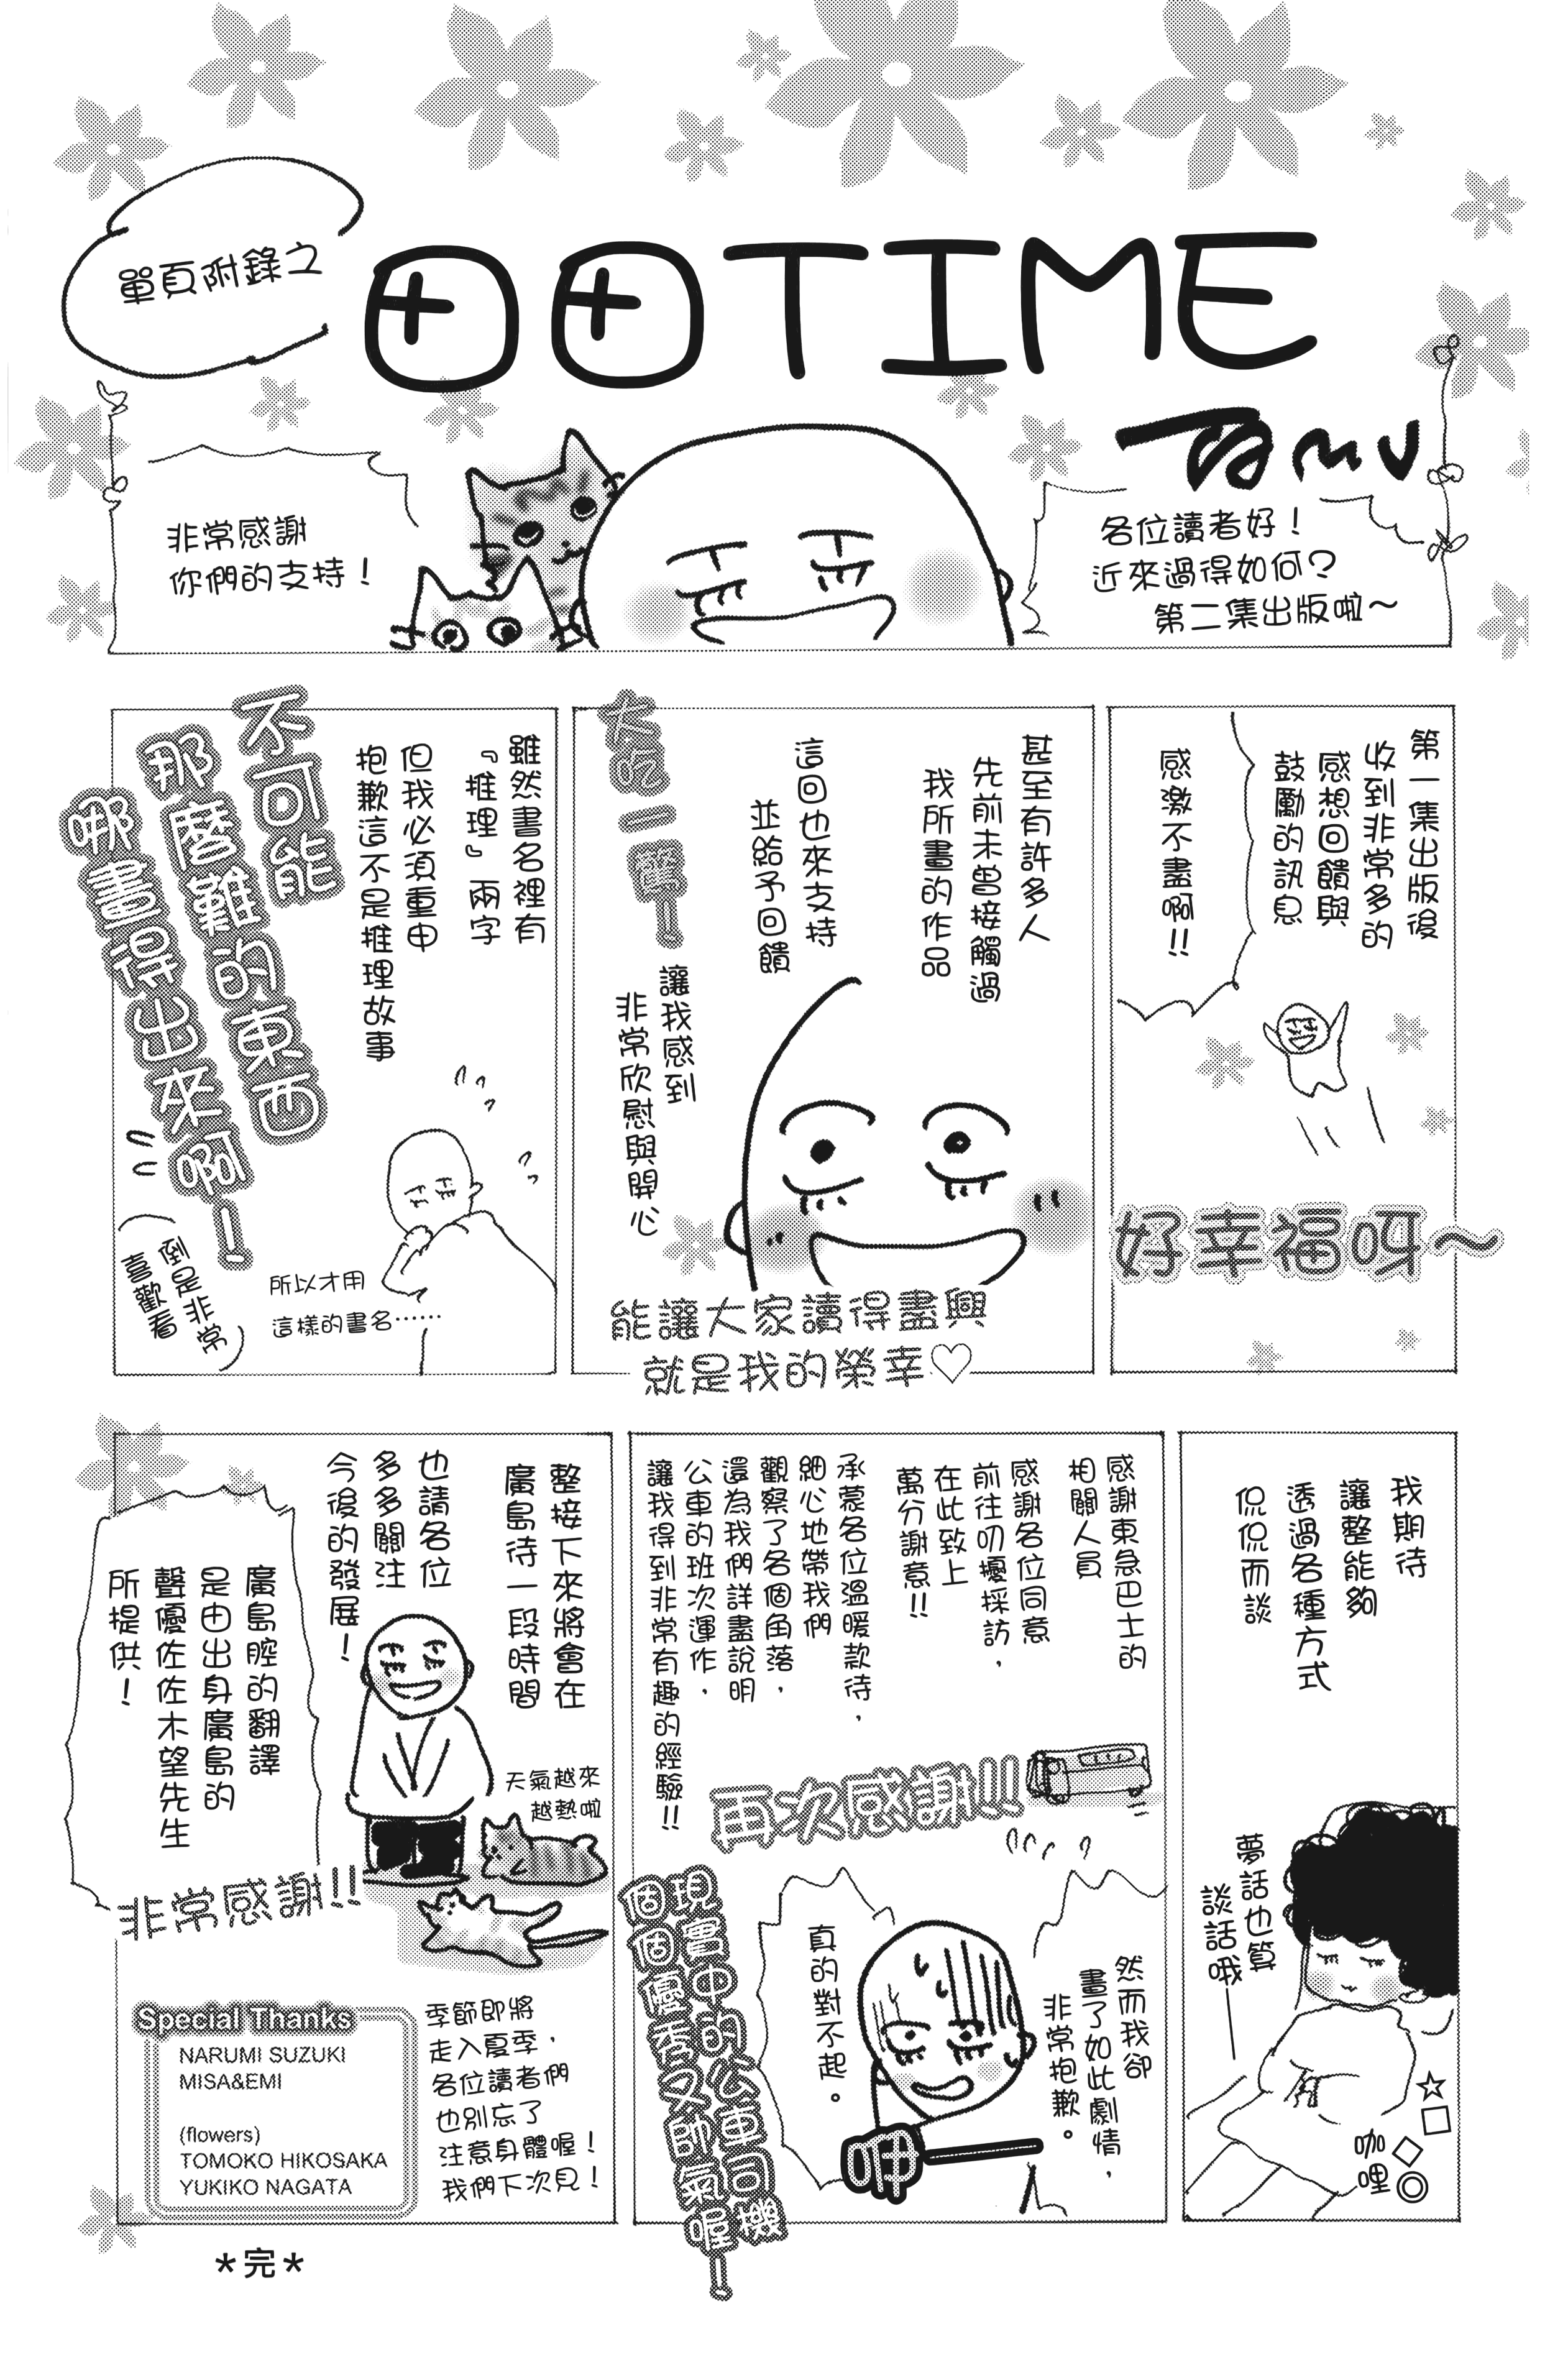 單頁附錄之
田田TIME
Tamu
各位讀者好！
近來過得如何？
第二集出版啦～
非常感謝
你們的支持！
第一集出版後
收到非常多的
感想回饋與
鼓勵的訊息
感激不盡啊!!
好幸福呀～
甚至有許多人
先前未曾接觸過
我所畫的作品
這回也來支持
並給予回饋
大吃一驚！
讓我感到
非常欣慰與開心
能讓大家讀得盡興
就是我的榮幸♡
雖然書名裡有
『推理』兩字
但我必須重申
抱歉這不是推理故事
不可能
那麼難的東西
哪畫得出來啊！
倒是非常
喜歡看
所以才用
這樣的書名……
我期待
讓整能夠
透過各種方式
侃侃而談
夢話也算
談話哦
☆
□
◇
◎
咖哩
感謝東急巴士的
相關人員
感謝各位同意
前往叨擾採訪，
在此致上
萬分謝意!!
承蒙各位溫暖款待，
細心地帶我們
觀察了各個角落，
還為我們詳盡說明
公車的班次運作，
讓我得到非常有趣的經驗!!
再次感謝!!
然而我卻
畫了如此劇情，
非常抱歉。
真的對不起。
現實中的公車司機
個個優秀又帥氣喔！
整接下來將會在
廣島待一段時間
也請各位
多多關注
今後的發展！
天氣越來
越熱啦
廣島腔的翻譯
是由出身廣島的
聲優佐佐木望先生
所提供！
非常感謝!!
季節即將
走入夏季，
各位讀者們
也別忘了
注意身體喔！
我們下次見！
Special Thanks
NARUMI SUZUKI
MISA&EMI
(flowers)
TOMOKO HIKOSAKA
YUKIKO NAGATA
＊完＊